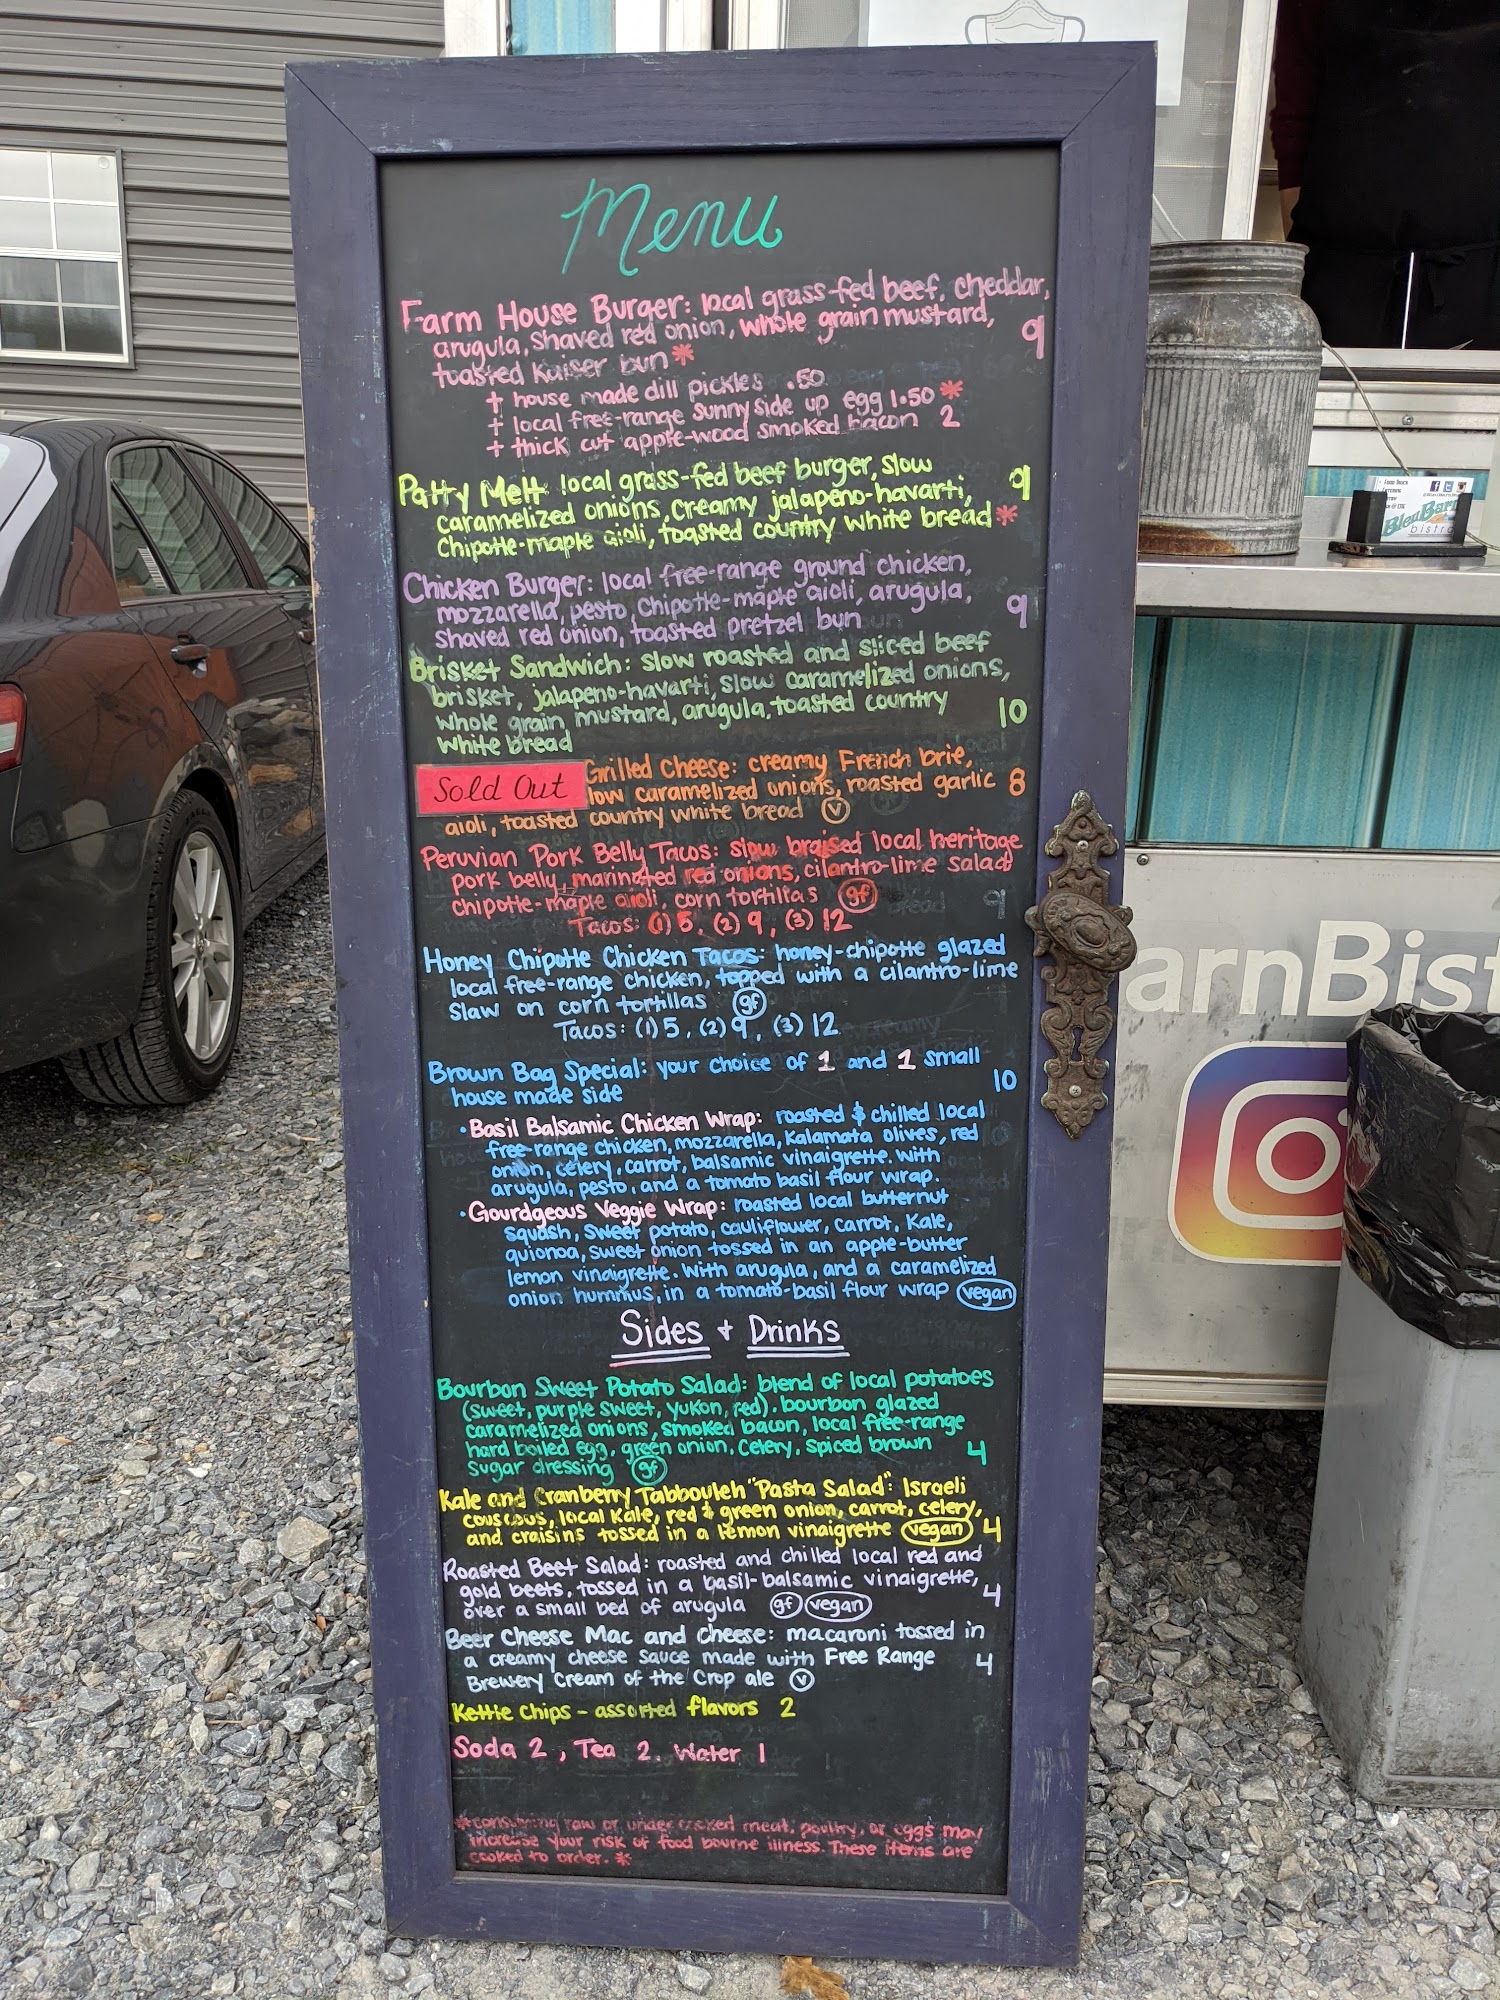 Menu
Farm House Burger: local grass-fed beef, cheddar,
arugula, shaved red onion, whole grain mustard, 9
toasted kaiser bun *
+ house made dill pickles .50
+ local free-range sunny side up egg 1.50 *
+ thick cut apple-wood smoked bacon 2
Patty Melt local grass-fed beef burger, slow 9
caramelized onions, creamy jalapeno-havarti,
chipotle-maple aioli, toasted country white bread *
Chicken Burger: local free-range ground chicken,
mozzarella, pesto, chipotle-maple aioli, arugula, 9
shaved red onion, toasted pretzel bun
Brisket Sandwich: slow roasted and sliced beef
brisket, jalapeno-havarti, slow caramelized onions,
whole grain mustard, arugula, toasted country 10
white bread
Sold Out
Grilled Cheese: creamy French brie,
low caramelized onions, roasted garlic 8
aioli, toasted country white bread (V)
Peruvian Pork Belly Tacos: slow braised local heritage
pork belly, marinated red onions, cilantro-lime salad
chipotle-maple aioli, corn tortillas (gf)
Tacos: (1) 5, (2) 9, (3) 12
Honey Chipotle Chicken Tacos: honey-chipotle glazed
local free-range chicken, topped with a cilantro-lime
slaw on corn tortillas (gf)
Tacos: (1) 5, (2) 9, (3) 12
Brown Bag Special: your choice of 1 and 1 small
house made side 10
• Basil Balsamic Chicken Wrap: roasted & chilled local
free-range chicken, mozzarella, Kalamata olives, red
onion, celery, carrot, balsamic vinaigrette. With
arugula, pesto, and a tomato basil flour wrap.
• Gourdgeous Veggie Wrap: roasted local butternut
squash, sweet potato, cauliflower, carrot, Kale,
quionoa, sweet onion tossed in an apple-butter
lemon vinaigrette. With arugula, and a caramelized
onion hummus, in a tomato-basil flour wrap (vegan)
Sides + Drinks
Bourbon Sweet Potato Salad: blend of local potatoes
(sweet, purple sweet, yukon, red). bourbon glazed
caramelized onions, smoked bacon, local free-range
hard boiled egg, green onion, celery, spiced brown 4
sugar dressing (gf)
Kale and Cranberry Tabbouleh "Pasta Salad": Israeli
couscous, local Kale, red & green onion, carrot, celery,
and craisins tossed in a lemon vinaigrette (vegan) 4
Roasted Beet Salad: roasted and chilled local red and
gold beets, tossed in a basil-balsamic vinaigrette, 4
over a small bed of arugula (gf) (vegan)
Beer Cheese Mac and cheese: macaroni tossed in
a creamy cheese sauce made with Free Range 4
Brewery Cream of the Crop ale (V)
Kettle Chips - assorted flavors 2
Soda 2, Tea 2, Water 1
*consuming raw or under cooked meat, poultry, or eggs may
increase your risk of food bourne illness. These items are
cooked to order. *
Bleu Barn
bistro
arnBist